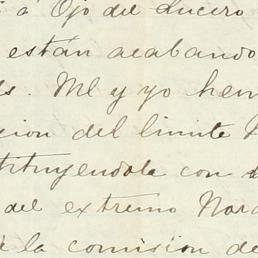 á Ojo del Lucero
están acabando
Ml y yo hem
sion del limite
tituyendola con
del extremo Nor
la comision de